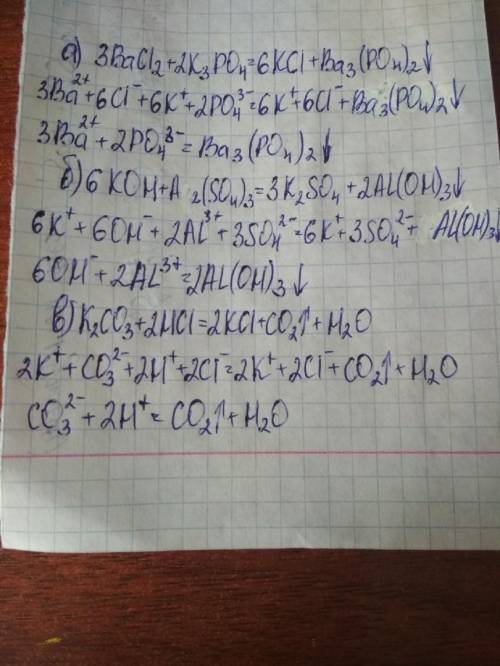 а) 3BaCl₂+2K₃PO₄=6KCl+Ba₃(PO₄)₂↓
3Ba²⁺+6Cl⁻+6K⁺+2PO₄³⁻=6K⁺+6Cl⁻+Ba₃(PO₄)₂↓
3Ba²⁺+2PO₄³⁻=Ba₃(PO₄)₂↓
б) 6KOH+A ₂(SO₄)₃=3K₂SO₄+2AL(OH)₃↓
6K⁺+6OH⁻+2AL³⁺+3SO₄²⁻=6K⁺+3SO₄²⁻+ AL(OH)₃↓
6OH⁻+2AL³⁺=2AL(OH)₃↓
в) K₂CO₃+2HCl=2KCl+CO₂↑+H₂O
2K⁺+CO₃²⁻+2H⁺+2Cl⁻=2K⁺+2Cl⁻+CO₂↑+H₂O
CO₃²⁻+2H⁺=CO₂↑+H₂O